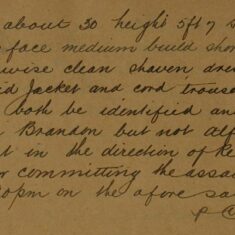 about 30 height 5ft 7
face medium build sho
wise clean shaven dre
id jacket and cord trouse
both be identified an
Brandon but not Alf
t in the direction of Ke
r committing the assa
0 pm on the afore sa